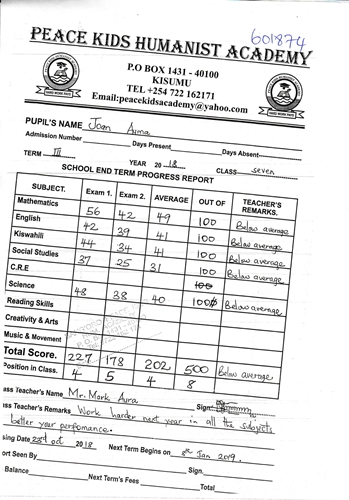 601874
PEACE KIDS HUMANIST ACADEMY
P.O BOX 1431 - 40100
KISUMU
TEL +254 722 162171
Email:peacekidsacademy@yahoo.com
PUPIL'S NAME Joan Auma
Admission Number Days Present Days Absent
TERM III YEAR 2018 CLASS seven
SCHOOL END TERM PROGRESS REPORT
SUBJECT. Exam 1. Exam 2. AVERAGE OUT OF TEACHER'S REMARKS.
Mathematics 56 42 49 100 Below average
English 42 39 41 100 Below average
Kiswahili 44 34 41 100 Below average
Social Studies 37 25 31 100 Below average
C.R.E 100
Science 48 38 40 100 Below average
Reading Skills
Creativity & Arts
Music & Movement
Total Score. 227 178 202 500 Below average
Position in Class. 4 5 4 8
ass Teacher's Name Mr. Mark Aura Sign:
ass Teacher's Remarks Work harder next year in all the subjects
better your perfomance.
sing Date 23rd oct 2018 Next Term Begins on 8th Jan 2019.
ort Seen By Sign:
Balance Next Term's Fees Total